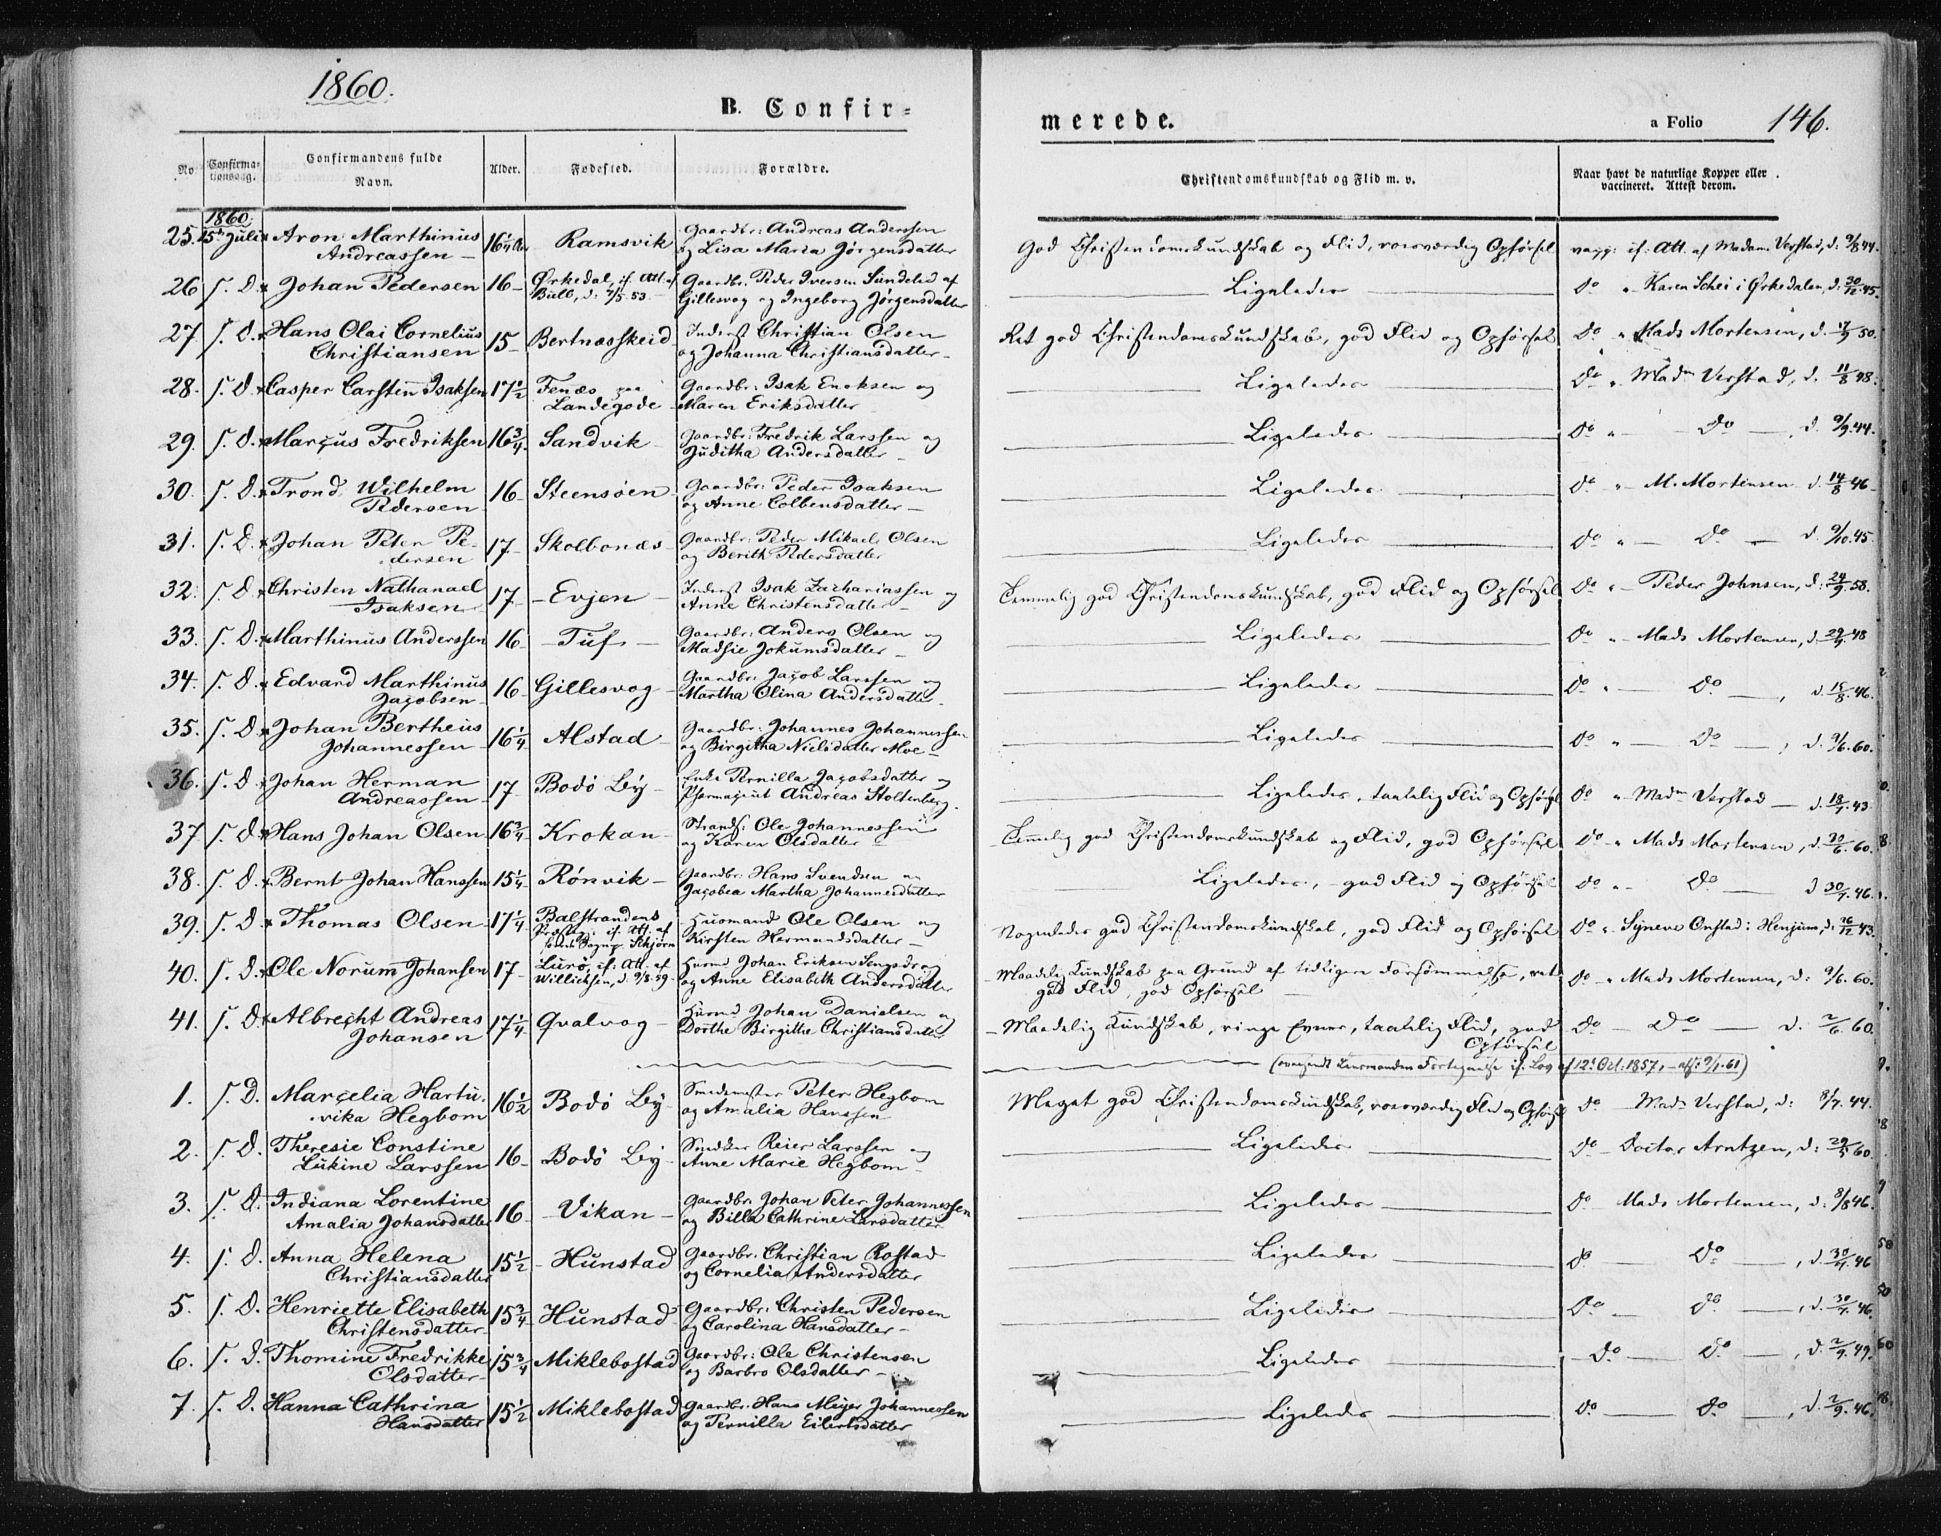 1860.
B. Confir-
merede.
a Folio 146.
No Confirma- tionsdag. Confirmandens fulde Navn. Alder. Fødested. Forældre. Christendomskundskab og Flid m. v. Naar havt de naturlige Kopper eller vaccineret. Attest derom.
1860.
25. 15de Juli Aron Marthinus 16 1/4 Ramsvik Gaardbr: Andreas Anderssen God Christendomskundskab og Flid, roesværdig Opførsel vacc: if: Att. af Madam Verstad, d: 9/8 44.
Andreassen og Lisa Maria Jørgensdatter
26 s. D. Johan Pedersen 16 Ørkedal, if. Att. af Gaardbr: Peder Iversen Sundelid af Ligeledes Do " Karen Schei i Ørkedalen, d: 30/12 45.
Bull, d: 7/5 53 Gillesvog og Ingeborg Jørgensdatter
27 s. D. Hans Olai Cornelius 15 Bertnæsskeid Inderst Christian Olsen Ret god Christendomskundskab, god Flid og Opførsel Do " Mads Mortensen, d. 17/9 50.
Christiansen og Johanna Christiansdatter
28. s. D. Casper Carsten Isaksen 17 1/2 Fenæs paa Gaardbr: Isak Enoksen og Ligeledes Do " Madm Verstad, d. 11/8 48.
Landegode Maren Eriksdatter
29. s. D. Marcus Fredriksen 16 3/4 Sandvik Gaardbr: Fredrik Larssen og Ligeledes Do " Do, d. 9/9 44.
Juditha Andersdatter
30. s. D. Trond Wilhelm 16 Steensøen Gaardbr: Peder Isaksen Ligeledes Do " M. Mortensen d. 14/8 46
Pedersen og Anne Colbensdatter
31. s. D. Johan Peter Pe- 17 Skolbonæs Gaardbr: Peder Mikael Olsen Ligeledes Do " Do d. 9/10 45.
dersen og Berith Pedersdatter
32. s. D. Christen Nathanael 17 Evjen Inderst Isak Zachariassen og Temmelig god Christendomskundskab, god Flid og Opførsel Do " Peder Johnsen, d. 24/9 58.
Isaksen Anne Christensdatter
33. s. D. Marthinus Anderssen 16 Tuf Gaardbr: Anders Olsen og Ligeledes Do " Mads Mortensen, d. 29/9 48
Madsie Jokumsdatter
34. s. D. Edvard Marthinus 16 Gillesvog Gaardbr: Jacob Larssen og Ligeledes Do " Do, d. 15/8 46.
Jacobsen Martha Olina Andersdatter
35. s. D. Johan Bertheus 16 1/4 Alstad Gaardbr: Johannes Johannessen Ligeledes Do " Do, d. 9/6 60.
Johannessen og Birgitha Nielsdatter Moe
36. s. D. Johan Herman 17 Bodø By Enke Pernilla Jacobsdatter og Ligeledes, taalelig Flid og Opførsel Do " Madm Verstad d. 18/7 43.
Andreassen Pharmaceut Andreas Stoltenberg.
37 s. D. Hans Johan Olsen 16 3/4 Krokan Strands: Ole Johannessen Temmelig god Christendomskundskab og Flid, god Opførsel Do " Mads Mortensen, d. 20/6 60.
og Karen Olsdatter
38. s. D. Bernt Johan Hanssen 15 1/4 Rønvik Gaardbr: Hans Svendsen og Ligeledes, god Flid og Opførsel Do " Do d 30/7 46.
Jacobea Martha Johannesdatter
39. s. D. Thomas Olsen 17 1/4 Balstrandens Huusmand Ole Olsen og Nogenledes god Christendomskundskab, god Flid og Opførsel Do " Synneve Onstad: Henjum, d. 16/12 43.
Præstegj: if. Att. af Kirsten Hermundsdatter
40. s. D. Ole Norum Johansen 17 Lurø, if: Att. af Huusmd Johan Eriksen og Maadelig Kundskab paa Grund af tidligere Forsømmelse, ret Do " Mads Mortensen, d: 9/6 60.
Willichsen, d. 9/8 59. og Anne Elisabeth Andersdatter god Flid, god Opførsel
41. s. D. Albrecht Andreas 17 1/4 Qvalvog Huusmd Johan Danielsen og Maadelig Kundskab, ringe Evner, taalelig Flid, god Do Do d. 2/6 60.
Johansen Dorthe Birgithe Christiansdatter Opførsel
(oversendt Lensmanden Fortegnelse if. Lov af 12te Oct: 1857, 9/1 61)
1. s. D. Marcelia Hartu- 16 1/2 Bodø By Smedemester Peter Hegbom Meget god Christendomskundskab, roesværdig Flid og Opførsel Do Madm Verstad, d: 8/7 44.
vika Hegbom og Amalia Hanssen
2. s. D. Theresie Constine 16 Bodø By Snedker Reier Larssen og Ligeledes Do Doctor Arntzen, d: 29/5 60.
Lukine Larssen Anne Marie Hegbom
3. s. D. Indiana Lorentine 16 Vikan Gaardbr: Johan Peter Johannessen Ligeledes Do Mads Mortensen, d: 8/8 46.
Amalia Johansdatter og Billa Cathrine Larsdatter
4. s. D. Anna Helena 15 1/2 Hunstad Gaardbr: Christian Rostad Ligeledes Do Do, d. 30/7 46
Christiansdatter og Cornelia Andersdatter
5. s. D. Henriette Elisabeth 15 3/4 Hunstad Gaardbr: Christen Pedersen Ligeledes Do Do, d. 30/7 46.
Christensdatter og Carolina Hansdatter
6. s. D. Thomine Fredrikke 15 3/4 Miklebostad Gaardbr: Ole Christensen Ligeledes Do Do, d. 2/9 49.
Olsdatter og Barbro Olsdatter
7. s. D. Hanna Cathrina 15 1/2 Miklebostad Gaardbr: Hans Meyer Johannessen Ligeledes Do Do, d. 2/9 46.
Hansdatter og Pernilla Eilertsdatter